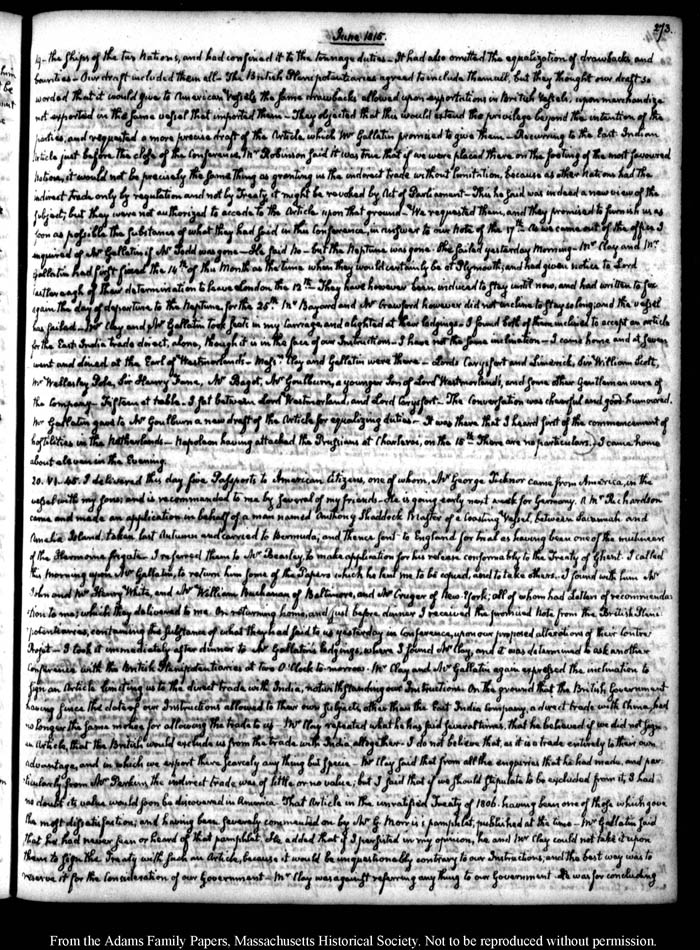 273.
June 1815.
by the Ships of the two Nations, and had confined it to the tonnage duties— It had also omitted the equalization of drawbacks and
bounties— Our draft included them all— The British Plenipotentiaries agreed to include them all, but they thought our draft so
worded that it would give to American Vessels the same drawbacks allowed upon exportations in British Vessels, upon merchandize
not exported in the same vessel that imported them— They objected that this would extend the privilege beyond the intention of the
parties, and requested a more precise draft of the Article which Mr Gallatin promised to give them— Recurring to the East-Indian
Article just before the close of the Conference, Mr Robinson said it was true that if we were placed there on the footing of the most favoured
Nation, it would not be precisely the same thing as granting us the indirect trade without limitation, because as other Nations had the
indirect trade only by regulation and not by Treaty it might be revoked by Act of Parliament— This he said was indeed a new view of the
subject; but they were not authorized to accede to the Article upon that ground— We requested them, and they promised to furnish us as
soon as possible the substance of what they had said in this Conference, in answer to our Note of the 17th. As we came out of the office I
enquired of Mr Gallatin if Mr Todd was gone— He said No— but the Neptune was gone. She sailed yesterday Morning— Mr Clay and Mr
Gallatin had first fixed the 14th of this Month as the time when they would certainly be at Plymouth; and had given notice to Lord
Castlereagh of their determination to leave London the 12th. They have however been induced to stay until now, and had written to fix
again the day of departure to the Neptune, for the 25th. Mr Bayard and Mr Crawford however did not incline to stay so long; and the vessel
has sailed— Mr Clay and Mr Gallatin took seats in my Carriage, and alighted at their lodgings— I found both of them inclined to accept an article
for the East-India trade direct, alone, though it is in the face of our Instructions— I have not the same inclination— I came home and at seven
went and dined at the Earl of Westmorland's— Messrs Clay and Gallatin were there— Lords Carysfort and Limerick, Sir William Scott,
Mr Wellesley Pole, Sir Henry Fane, Mr Bagot, Mr Goulburn, a younger Son of Lord Westmorland's, and some other Gentlemen were of
the Company— Fifteen at table— I sat between Lord Westmorland, and Lord Carysfort— The Conversation was cheerful and good-humoured.
Mr Gallatin gave to Mr Goulburn a new draft of the Article for equalizing duties— It was there that I heard first of the commencement of
hostilities in the Netherlands— Napoleon having attacked the Prussians at Charleroi, on the 15th. There are no particulars— I came home
about eleven in the Evening.
20. VI. I delivered this day five Passports to American Citizens, one of whom, Mr George Ticknor came from America, in the
vessel with my sons; and is recommended to me by several of my friends— He is going early next week for Germany. A Mr Richardson
came and made an application in behalf of a man named Anthony Shaddock Master of a Coasting Vessel, between Savannah and
Amelia Island, taken last Autumn and carried to Bermuda; and thence sent to England for trial as having been one of the mutineers
of the Hermione frigate— I referred them to Mr Beasley, to make application for his release conformably to the Treaty of Ghent. I called
this Morning upon Mr Gallatin, to return him some of the Papers which he lent me to be copied, and to take others. I found with him Mr
John and Mr Henry White, and Mr William Buchanan of Baltimore, and Mr Cruger of New-York; all of whom had Letters of recommenda-
tion to me; which they delivered to me. On returning home, and just before dinner I received the promised Note from the British Pleni-
potentiaries, containing the substance of what they had said to us yesterday in Conference, upon our proposed alterations of their Contre
Projet— I took it immediately after dinner to Mr Gallatin's lodgings, where I found Mr Clay, and it was determined to ask another
Conference with the British Plenipotentiaries at two O'Clock to-morrow. Mr Clay and Mr Gallatin again expressed the inclination to
sign an Article limiting us to the direct trade with India, notwithstanding our Instructions. On the ground that the British Government
having since the date of our Instructions allowed to their own subjects, other than the East India Company, a direct trade with China, had
no longer the same motive for allowing the trade to us— Mr Clay repeated what he has said several times, that he believed if we did not sign
an Article, that the British would exclude us from the trade with India altogether— I do not believe that, as it is a trade entirely to their own
advantage, and in which we export there scarcely any thing but specie— Mr Clay said that from all the enquiries that he had made, and par-
ticularly from Mr Perkins, the indirect trade was of little or no value; but I said that if we should stipulate to be excluded from it, I had
no doubt its value would soon be discovered in America. That Article in the unratified Treaty of 1806. having been one of those which gave
the most dissatisfaction; and having been severely commented on by Mr G. Morris's pamphlet, published at the time— Mr Gallatin said
that he had never seen or heard of that pamphlet. He added that if I persisted in my opinion, he and Mr Clay could not take it upon
them to sign the Treaty with such an Article, because it would be unquestionably contrary to our Instructions; and the best way was to
reserve it for the Consideration of our Government— Mr Clay was against referring any thing to our Government. He was for concluding
From the Adams Family Papers, Massachusetts Historical Society. Not to be reproduced without permission.